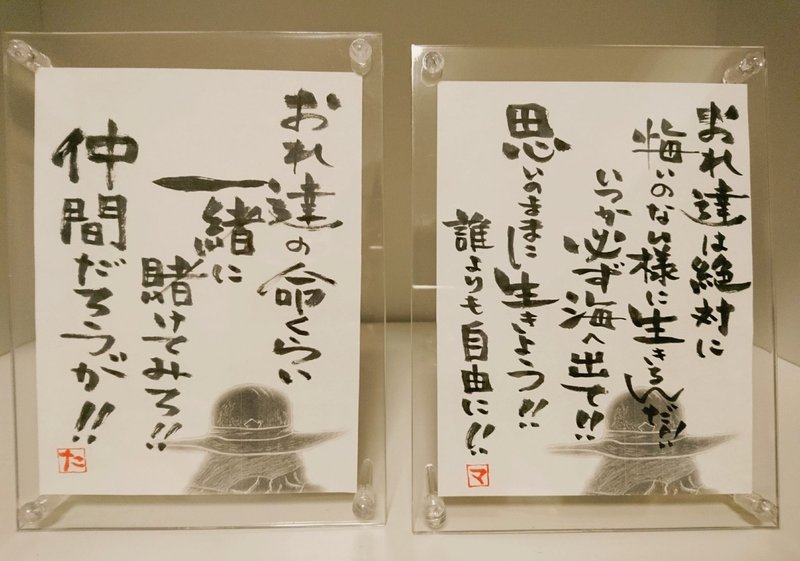 おれ達の命くらい
一緒に
賭けてみろ!!
仲間だろうが!!
た
おれ達は絶対に
悔いのない様に生きるんだ!!
いつか必ず海へ出て!!
思いのままに生きよう!!
誰よりも自由に!!
マ